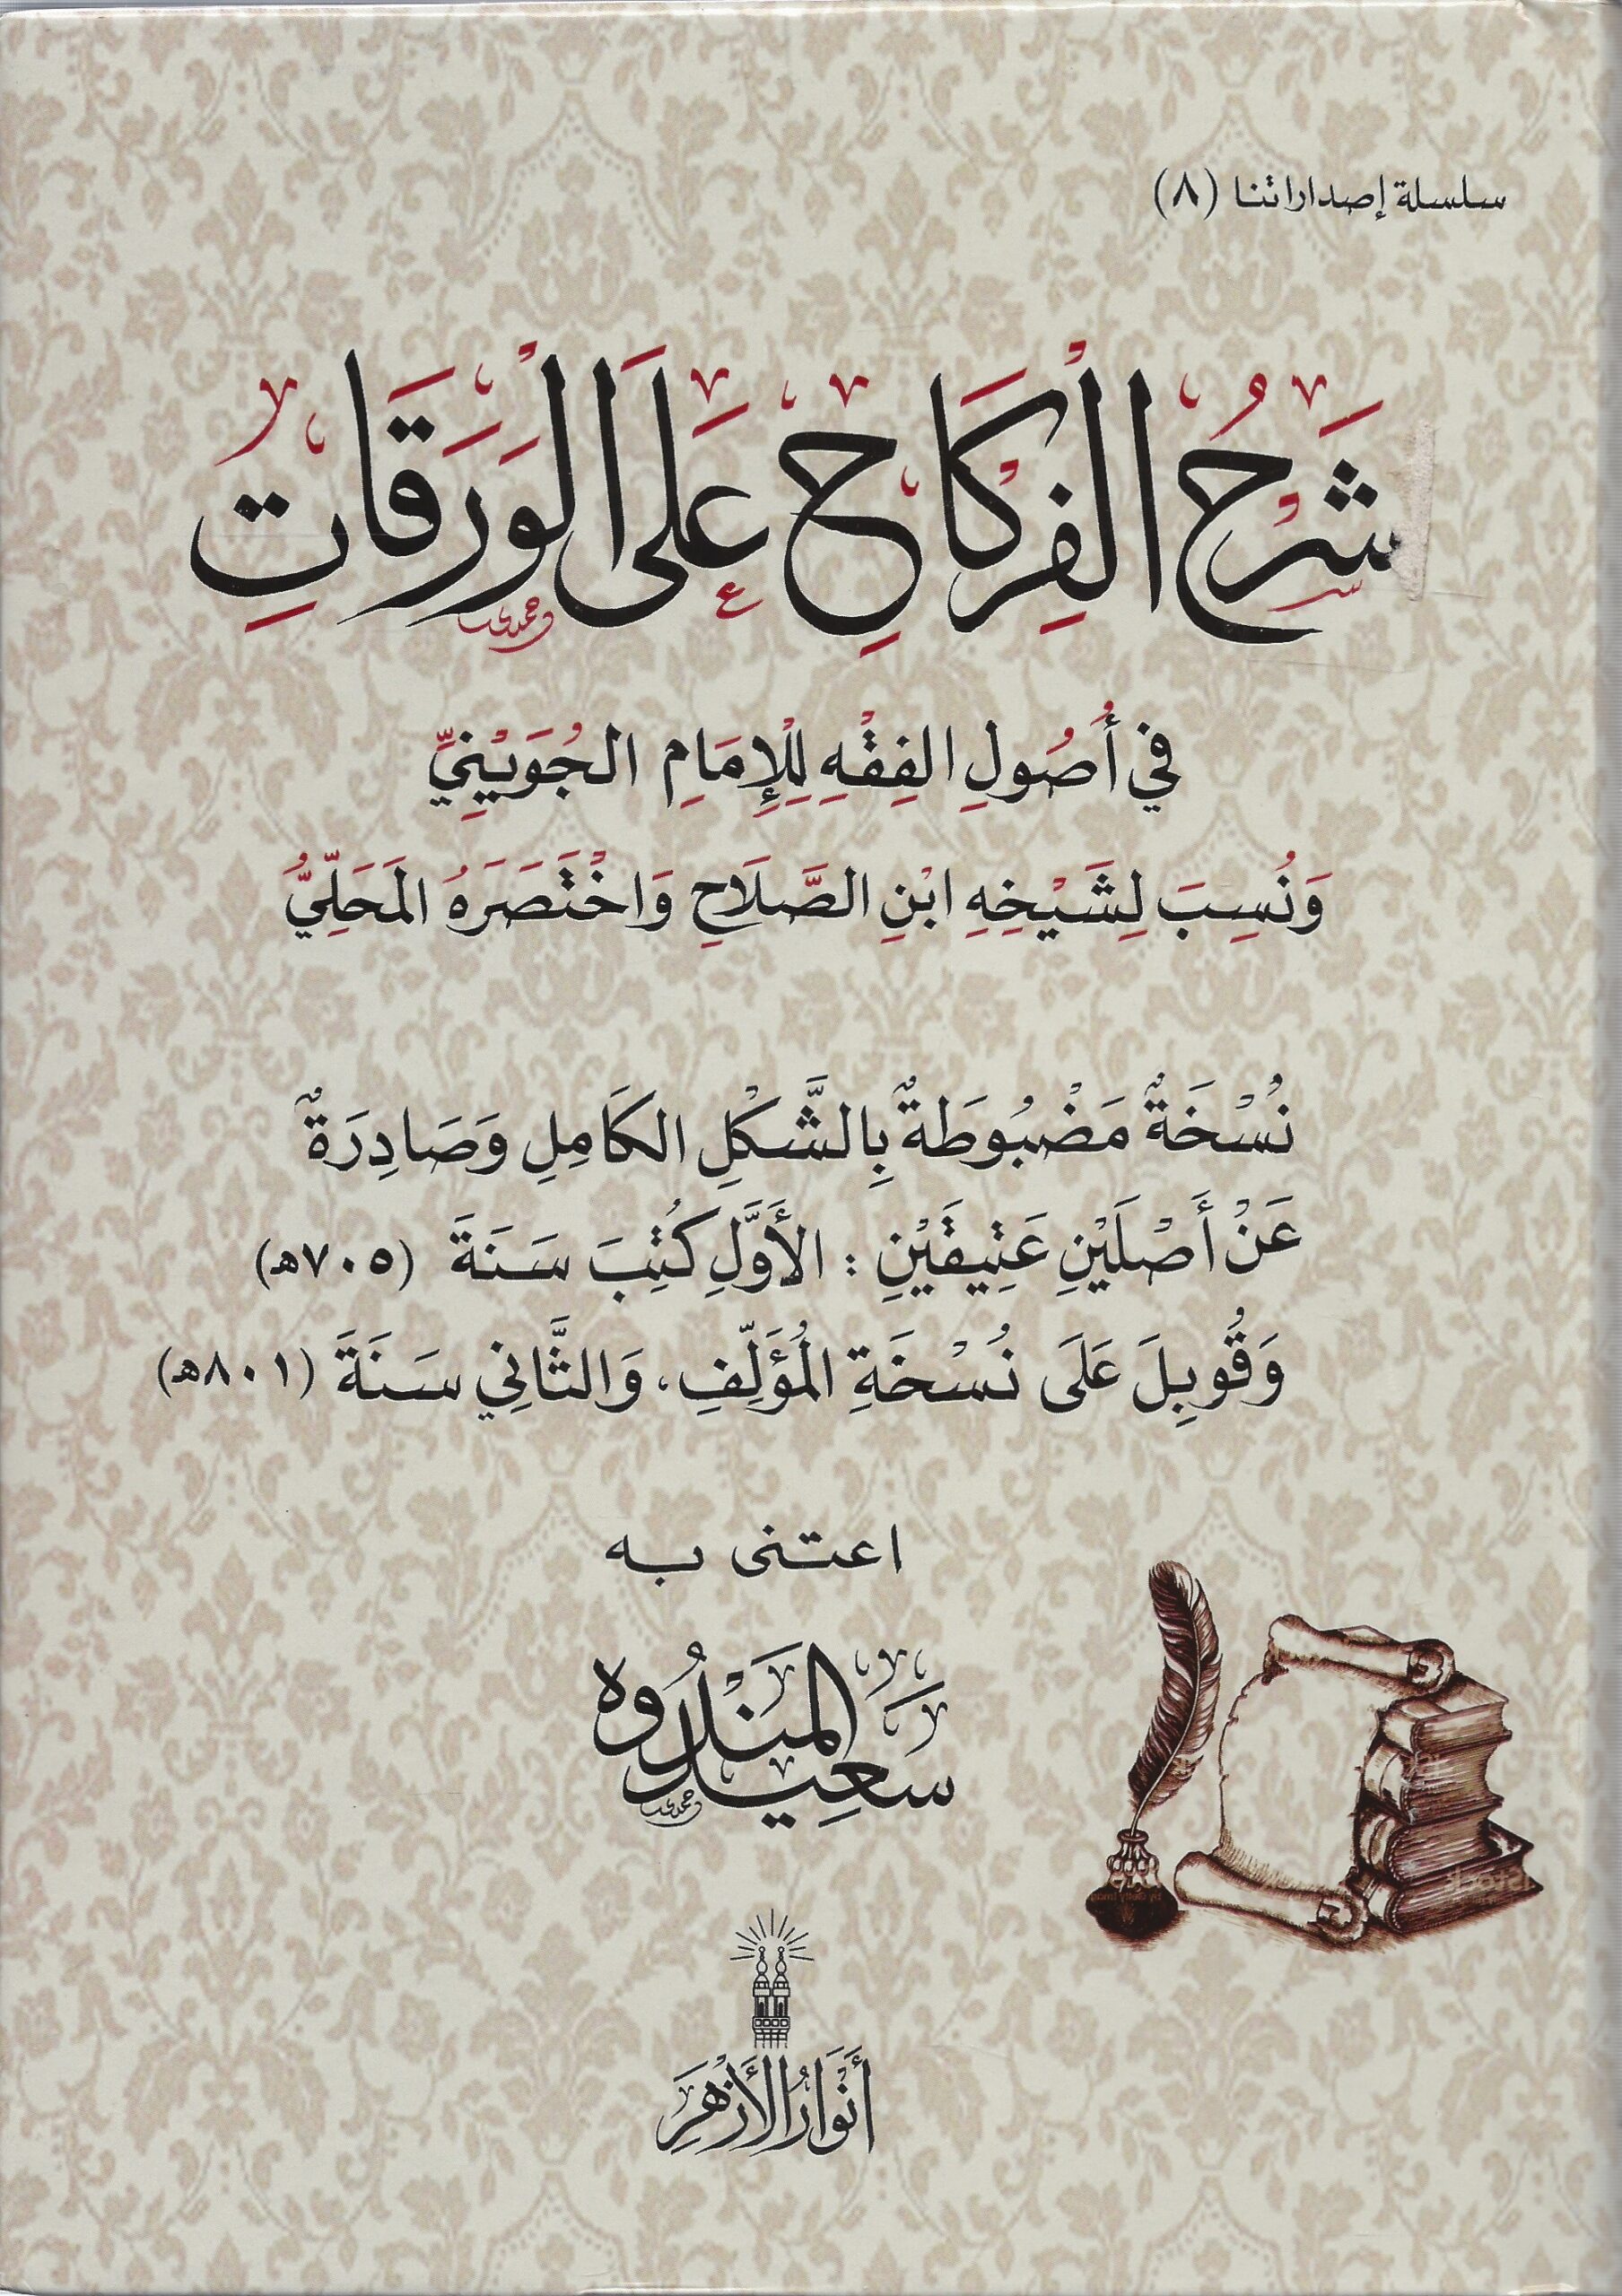 سلسلة إصداراتنا (٨)
شَرْحُ الْفِرْكَاحِ عَلَى الْوَرَقَاتِ
في أُصُولِ الفِقْهِ لِلْإِمَامِ الجُوَيْنِيِّ
وَنُسِبَ لِشَيْخِهِ ابْنِ الصَّلَاحِ وَاخْتَصَرَهُ المَحَلِّيُّ
نُسْخَةٌ مَضْبُوطَةٌ بِالشَّكْلِ الكَامِلِ وَصَادِرَةٌ
عَنْ أَصْلَيْنِ عَتِيقَيْنِ : الأَوَّلِ كُتِبَ سَنَةَ (٧٠٥هـ)
وَقُوبِلَ عَلَى نُسْخَةِ المُؤَلِّفِ، وَالثَّانِي سَنَةَ (٨٠١هـ)
اعتنى به
سَعِيد المَنْدُوه
أَنْوَارُ الأَزْهَرِ